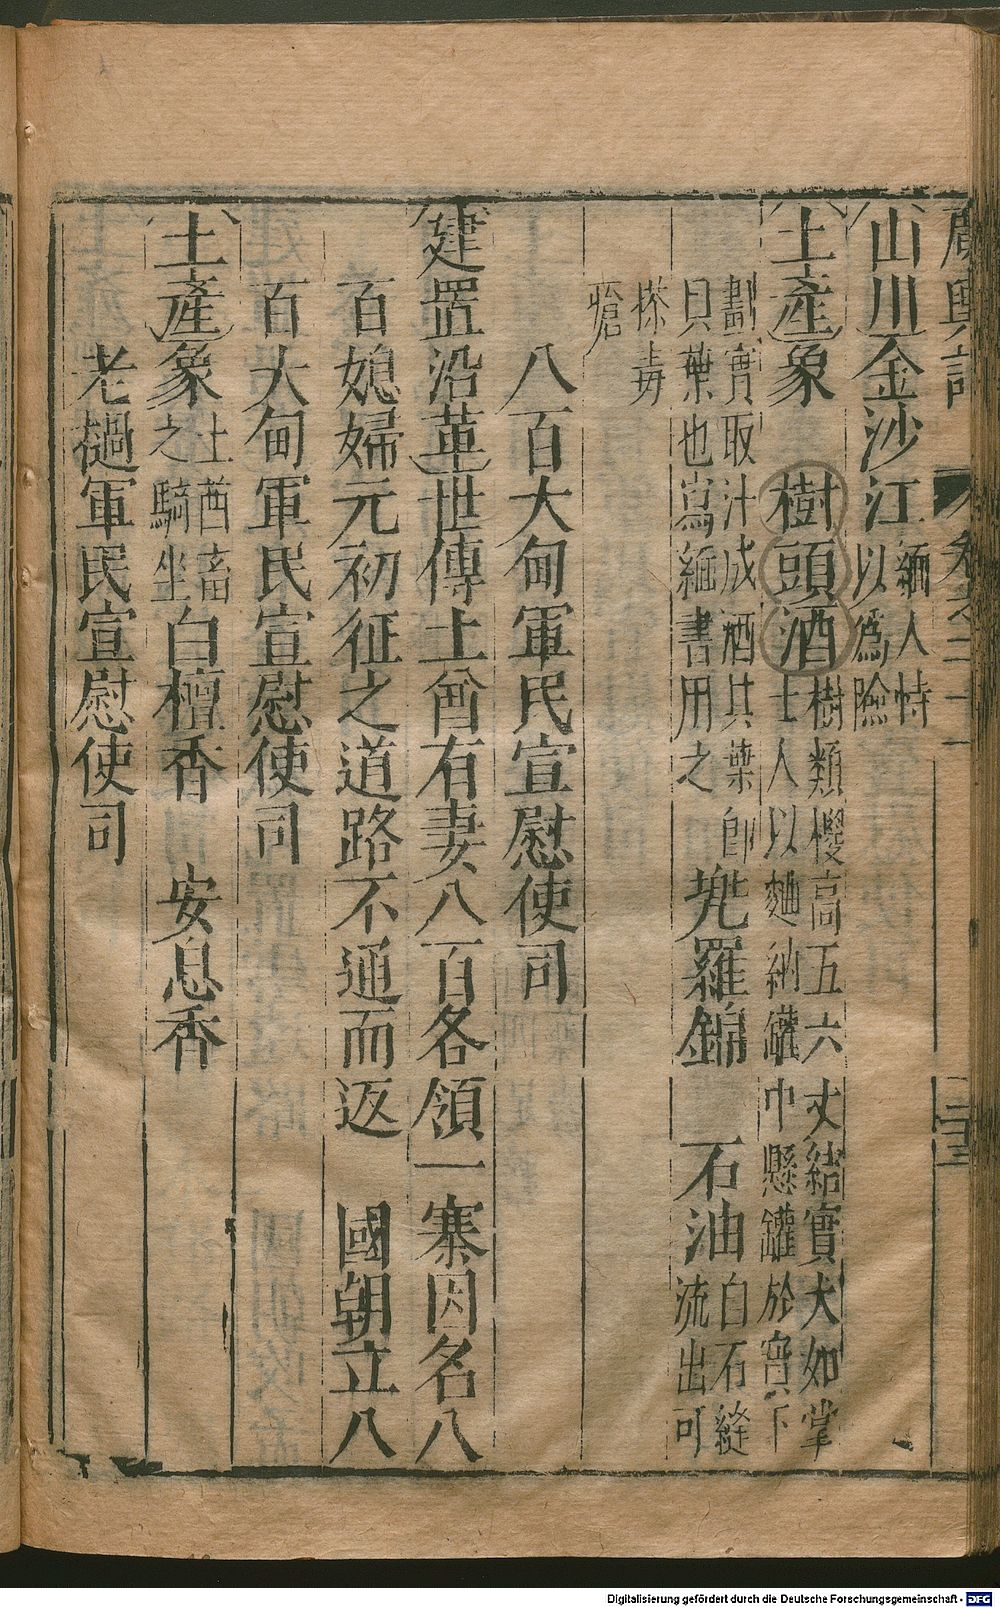 廣輿記 卷之二十一
山川金沙江緬人恃以爲險
土產象 樹頭酒樹類椶高五六丈結實大如掌土人以麯納罐中懸罐於實下
劃實取汁成酒其葉卽貝葉也寫緬書用之 兠羅錦 石油白石縫流出可
搽毒瘡
八百大甸軍民宣慰使司
建置沿革世傳土酋有妻八百各領一寨因名八
百媳婦元初征之道路不通而返 國朝立八
百大甸軍民宣慰使司
土產象土酋畜之騎坐白檀香 安息香
老撾軍民宣慰使司
Digitalisierung gefördert durch die Deutsche Forschungsgemeinschaft - DFG